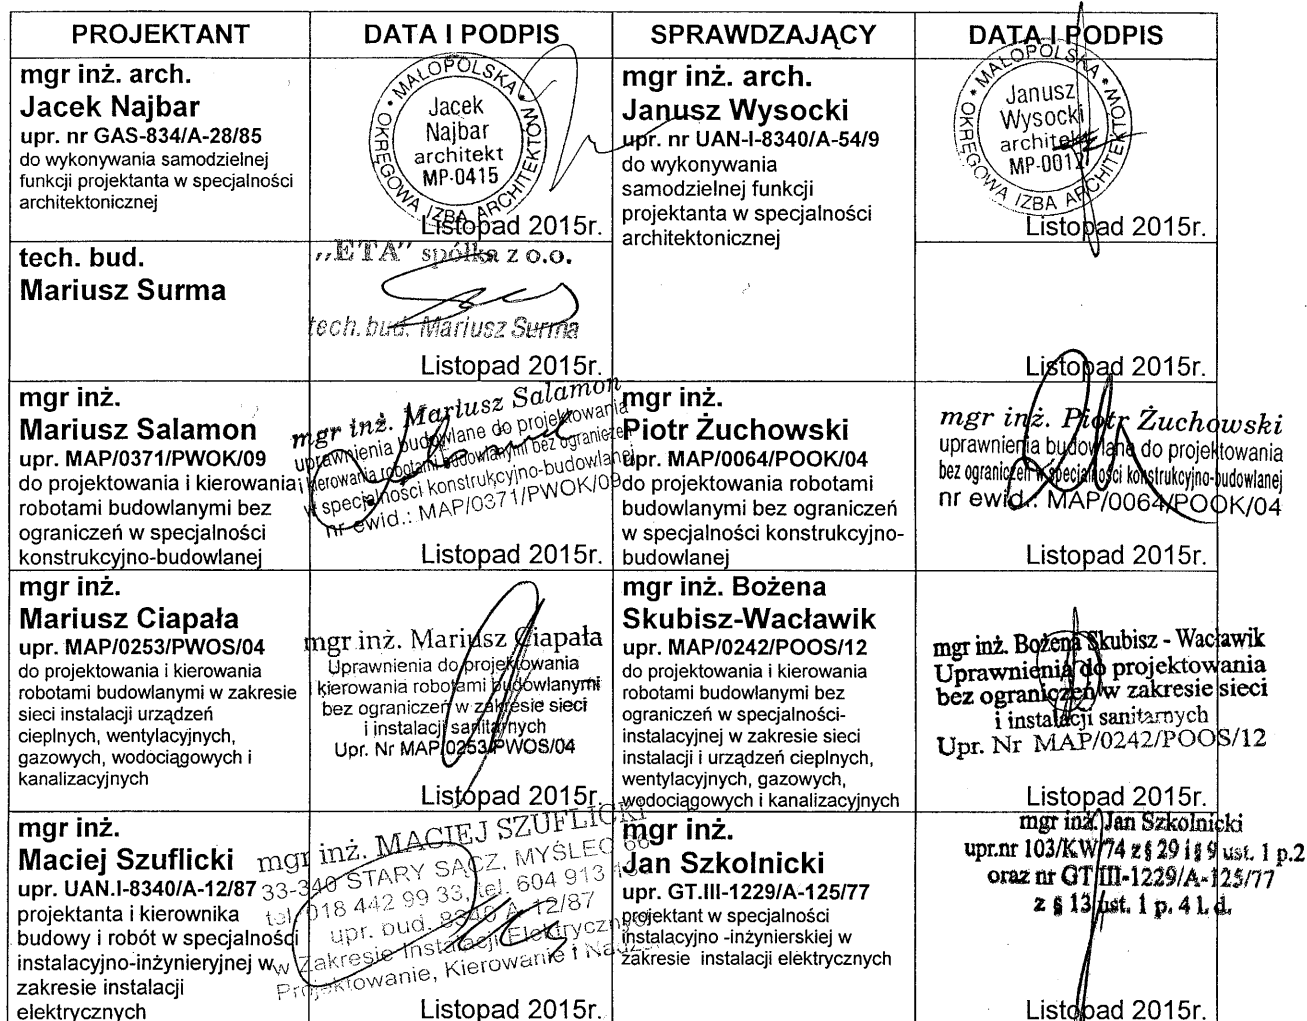 PROJEKTANT
DATA I PODPIS
SPRAWDZAJĄCY
DATA I PODPIS
mgr inż. arch.
Jacek Najbar
upr. nr GAS-834/A-28/85
do wykonywania samodzielnej
funkcji projektanta w specjalności
architektonicznej
MAŁOPOLSKA OKRĘGOWA IZBA ARCHITEKTÓW
Jacek
Najbar
architekt
MP-0415
Listopad 2015r.
mgr inż. arch.
Janusz Wysocki
upr. nr UAN-I-8340/A-54/9
do wykonywania
samodzielnej funkcji
projektanta w specjalności
architektonicznej
MAŁOPOLSKA OKRĘGOWA IZBA ARCHITEKTÓW
Janusz
Wysocki
architekt
MP-0012
Listopad 2015r.
tech. bud.
Mariusz Surma
„ETA” spółka z o.o.
tech. bud. Mariusz Surma
Listopad 2015r.
Listopad 2015r.
mgr inż.
Mariusz Salamon
upr. MAP/0371/PWOK/09
do projektowania i kierowania
robotami budowlanymi bez
ograniczeń w specjalności
konstrukcyjno-budowlanej
mgr inż. Mariusz Salamon
uprawnienia budowlane do projektowania
i kierowania robotami budowlanymi bez ograniczeń
w specjalności konstrukcyjno-budowlanej
nr ewid.: MAP/0371/PWOK/09
Listopad 2015r.
mgr inż.
Piotr Żuchowski
upr. MAP/0064/POOK/04
do projektowania robotami
budowlanymi bez ograniczeń
w specjalności konstrukcyjno-
budowlanej
mgr inż. Piotr Żuchowski
uprawnienia budowlane do projektowania
bez ograniczeń w specjalności konstrukcyjno-budowlanej
nr ewid.: MAP/0064/POOK/04
Listopad 2015r.
mgr inż.
Mariusz Ciapała
upr. MAP/0253/PWOS/04
do projektowania i kierowania
robotami budowlanymi w zakresie
sieci instalacji urządzeń
cieplnych, wentylacyjnych,
gazowych, wodociągowych i
kanalizacyjnych
mgr inż. Mariusz Ciapała
Uprawnienia do projektowania
i kierowania robotami budowlanymi
bez ograniczeń w zakresie sieci
i instalacji sanitarnych
Upr. Nr MAP/0253/PWOS/04
Listopad 2015r.
mgr inż. Bożena
Skubisz-Wacławik
upr. MAP/0242/POOS/12
do projektowania i kierowania
robotami budowlanymi bez
ograniczeń w specjalności-
instalacyjnej w zakresie sieci
instalacji i urządzeń cieplnych,
wentylacyjnych, gazowych,
wodociągowych i kanalizacyjnych
mgr inż. Bożena Skubisz - Wacławik
Uprawnienia do projektowania
bez ograniczeń w zakresie sieci
i instalacji sanitarnych
Upr. Nr MAP/0242/POOS/12
Listopad 2015r.
mgr inż.
Maciej Szuflicki
upr. UAN.I-8340/A-12/87
projektanta i kierownika
budowy i robót w specjalności
instalacyjno-inżynieryjnej w
zakresie instalacji
elektrycznych
mgr inż. MACIEJ SZUFLICKI
33-340 STARY SĄCZ, MYŚLEC 66
tel. 018 442 99 33, tel. 604 913
upr. bud. 8340 A-12/87
w Zakresie Instalacji Elektrycznych
Projektowanie, Kierowanie i
Listopad 2015r.
mgr inż.
Jan Szkolnicki
upr. GT.III-1229/A-125/77
projektant w specjalności
instalacyjno -inżynierskiej w
zakresie instalacji elektrycznych
mgr inż. Jan Szkolnicki
upr.nr 103/KW/74 z § 29 i § 9 ust. 1 p.2
oraz nr GT III-1229/A-125/77
z § 13 ust. 1 p. 4 l. d.
Listopad 2015r.